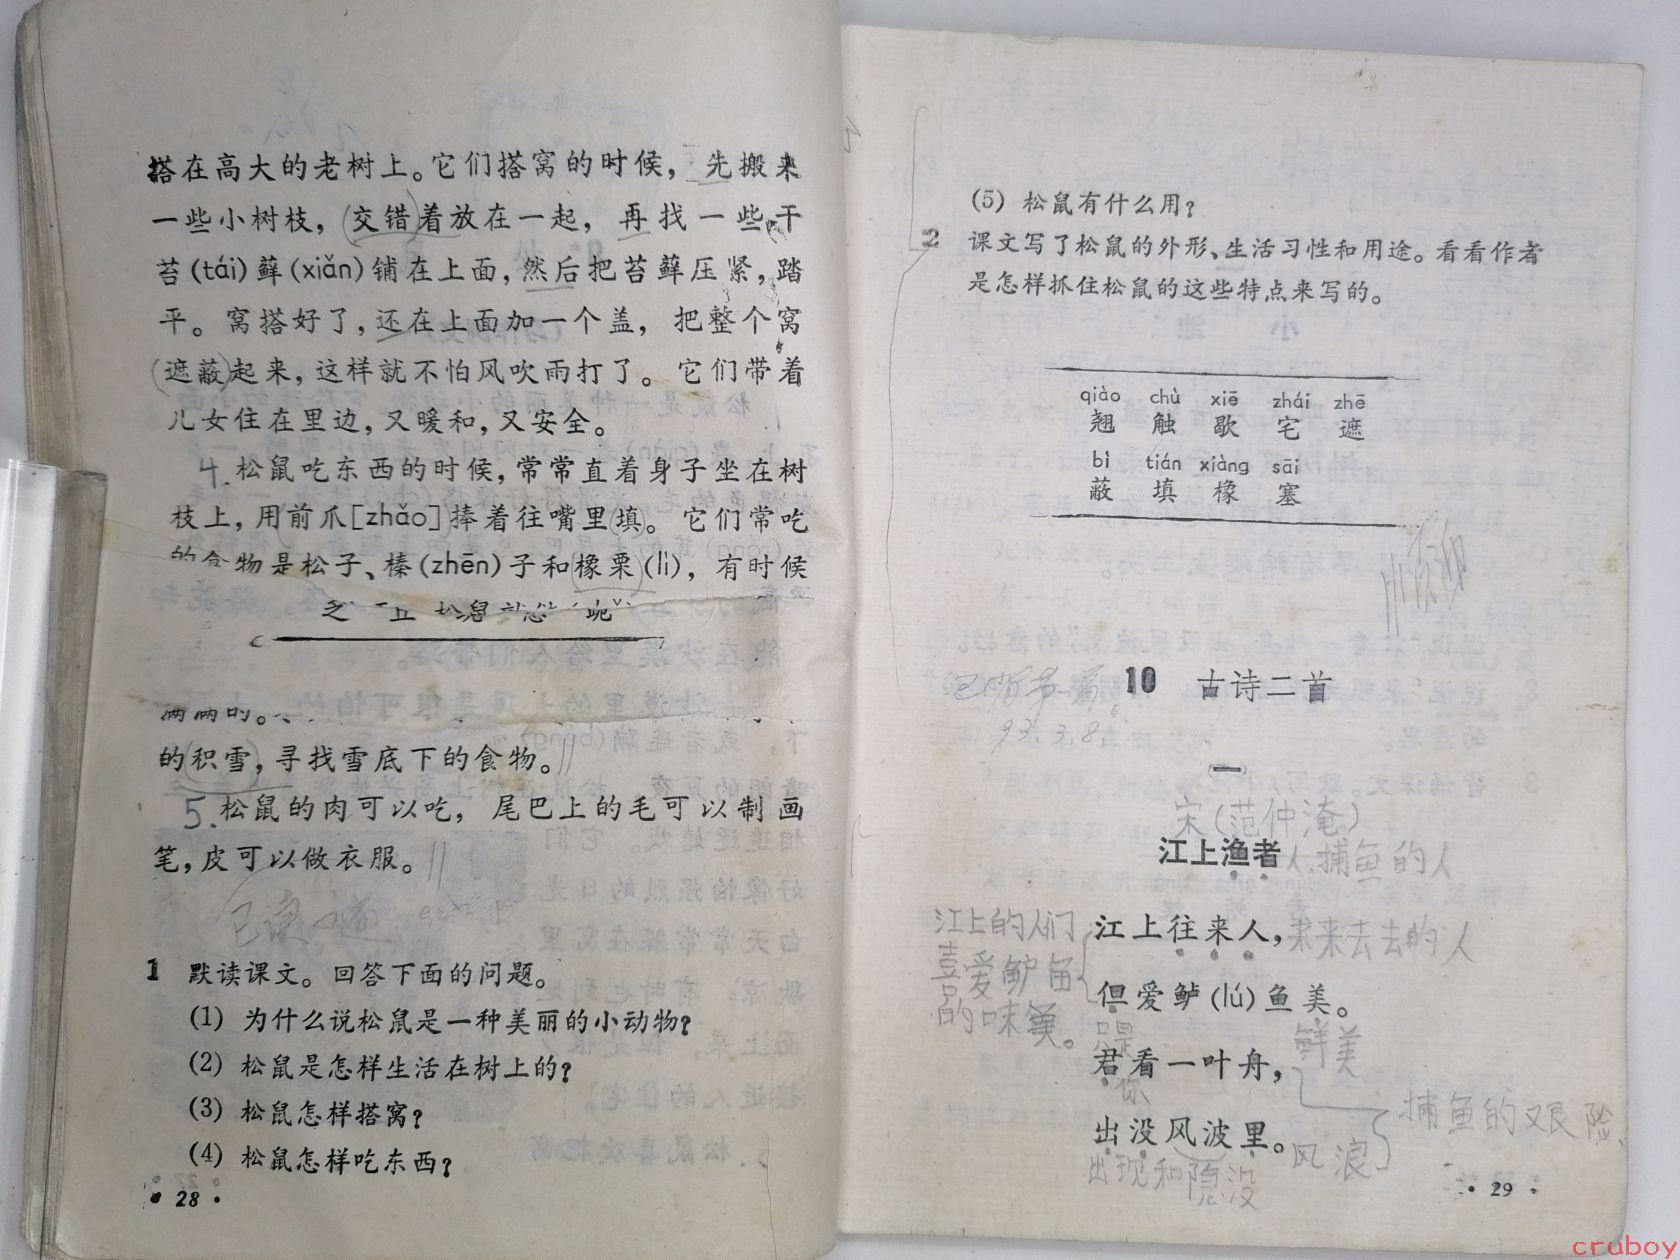 搭在高大的老树上。它们搭窝的时候，先搬来
一些小树枝，交错着放在一起，再找一些干
苔(tái)藓(xiǎn)铺在上面，然后把苔藓压紧，踏
平。窝搭好了，还在上面加一个盖，把整个窝
遮蔽起来，这样就不怕风吹雨打了。它们带着
儿女住在里边，又暖和，又安全。
4.松鼠吃东西的时候，常常直着身子坐在树
枝上，用前爪[zhǎo]捧着往嘴里填。它们常吃
的食物是松子、榛(zhēn)子和橡栗(lì)，有时候
的积雪，寻找雪底下的食物。
5.松鼠的肉可以吃，尾巴上的毛可以制画
笔，皮可以做衣服。
1 默读课文。回答下面的问题。
(1) 为什么说松鼠是一种美丽的小动物？
(2) 松鼠是怎样生活在树上的？
(3) 松鼠怎样搭窝？
(4) 松鼠怎样吃东西？
·28·
(5) 松鼠有什么用？
2 课文写了松鼠的外形、生活习性和用途。看看作者
是怎样抓住松鼠的这些特点来写的。
qiào chù xiē zhái zhē
翘 触 歇 宅 遮
bì tián xiàng sāi
蔽 填 橡 塞
10 古诗二首
93.3.8
一
宋(范仲淹)
江上渔者 人.捕鱼的人
江上往来人，来来去去的人
江上的人们
喜爱鲈鱼
的味美。
但爱鲈(lú)鱼美。
只是
鲜美
君看一叶舟，
你
捕鱼的艰险
出没风波里。风浪
出现和隐没
·29·
cruboy